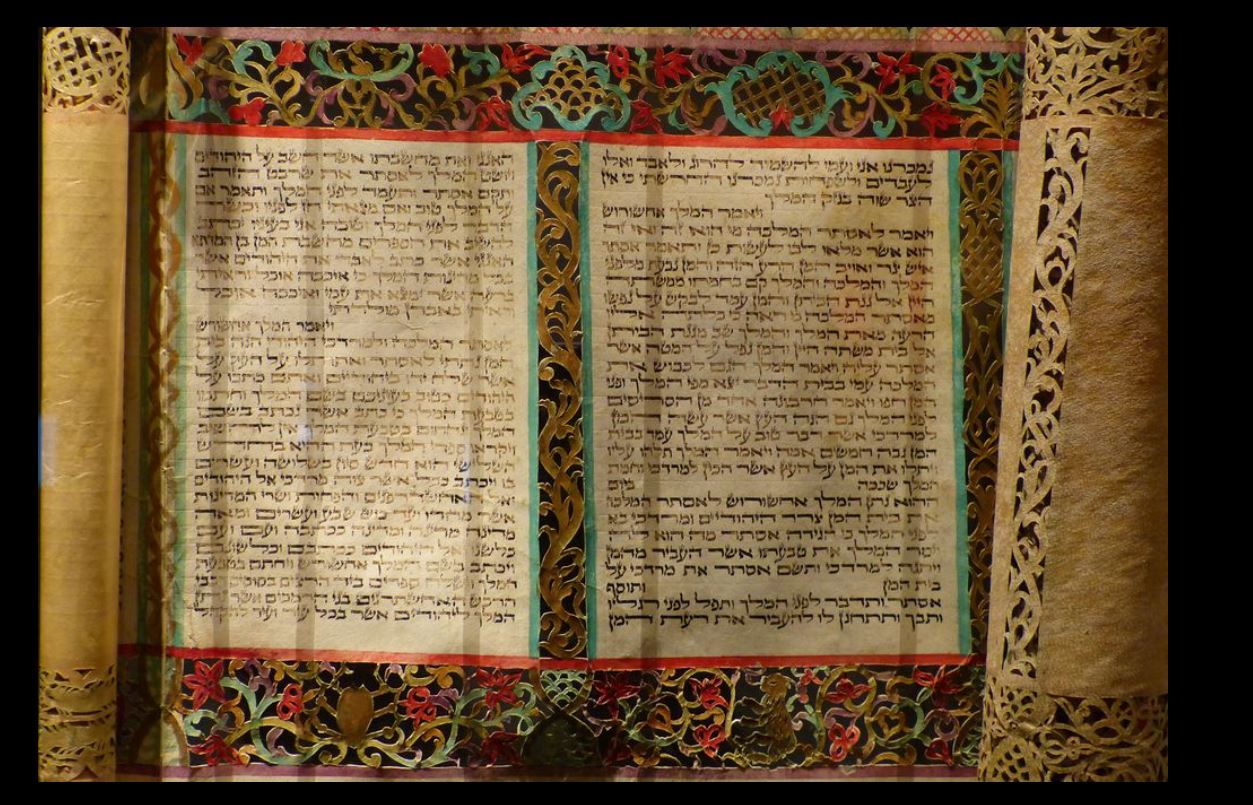 נמכרנו אני ועמי להשמיד להרוג ולאבד ואלו
לעבדים ולשפחות נמכרנו החרשתי כי אין
הצר שוה בנזק המלך
ויאמר המלך אחשורוש
ויאמר לאסתר המלכה מי הוא זה ואי זה
הוא אשר מלאו לבו לעשות כן ותאמר אסתר
איש צר ואויב המן הרע הזה והמן נבעת מלפני
המלך והמלכה והמלך קם בחמתו ממשתה
היין אל גנת הביתן והמן עמד לבקש על נפשו
מאסתר המלכה כי ראה כי כלתה אליו
הרעה מאת המלך והמלך שב מגנת הביתן
אל בית משתה היין והמן נפל על המטה אשר
אסתר עליה ויאמר המלך הגם לכבוש את
המלכה עמי בבית הדבר יצא מפי המלך ופני
המן חפו ויאמר חרבונה אחד מן הסריסים
לפני המלך גם הנה העץ אשר עשה המן
למרדכי אשר דבר טוב על המלך עמד בבית
המן גבה חמשים אמה ויאמר המלך תלהו עליו
ויתלו את המן על העץ אשר הכין למרדכי וחמת
המלך שככה ביום
ההוא נתן המלך אחשורוש לאסתר המלכה
את בית המן צרר היהודיים ומרדכי בא
לפני המלך כי הגידה אסתר מה הוא לה
ויסר המלך את טבעתו אשר העביר מהמן
ויתנה למרדכי ותשם אסתר את מרדכי על
בית המן ותוסף
אסתר ותדבר לפני המלך ותפל לפני רגליו
ותבך ותתחנן לו להעביר את רעת המן
האגגי ואת מחשבתו אשר חשב על היהודיים
ויושט המלך לאסתר את שרבט הזהב
ותקם אסתר ותעמד לפני המלך ותאמר אם
על המלך טוב ואם מצאתי חן לפניו וכשר
הדבר לפני המלך וטובה אני בעיניו יכתב
להשיב את הספרים מחשבת המן בן המדתא
האגגי אשר כתב לאבד את היהודיים אשר
בכל מדינות המלך כי איככה אוכל וראיתי
ברעה אשר ימצא את עמי ואיככה אוכל
וראיתי באבדן מולדתי
ויאמר המלך אחשורש
לאסתר המלכה ולמרדכי היהודי הנה בית
המן נתתי לאסתר ואתו תלו על העץ על
אשר שלח ידו ביהודיים ואתם כתבו על
היהודים כטוב בעיניכם בשם המלך וחתמו
בטבעת המלך כי כתב אשר נכתב בשם
המלך ונחתום בטבעת המלך אין להשיב
ויקראו ספרי המלך בעת ההיא בחדש
השלישי הוא חדש סיון בשלושה ועשרים
בו ויכתב ככל אשר צוה מרדכי אל היהודים
ואל האחשדרפנים והפחות ושרי המדינות
אשר מהדו ועד כוש שבע ועשרים ומאה
מדינה מדינה ומדינה ככתבה ועם ועם
כלשנו ואל היהודים ככתבם וכלשונם
ויכתב בשם המלך אחשורש ויחתם בטבעת
המלך וישלח ספרים ביד הרצים בסוסים רכבי
הרכש האחשתרנים בני הרמכים אשר נתן
המלך ליהודים אשר בכל עיר ועיר להקהל